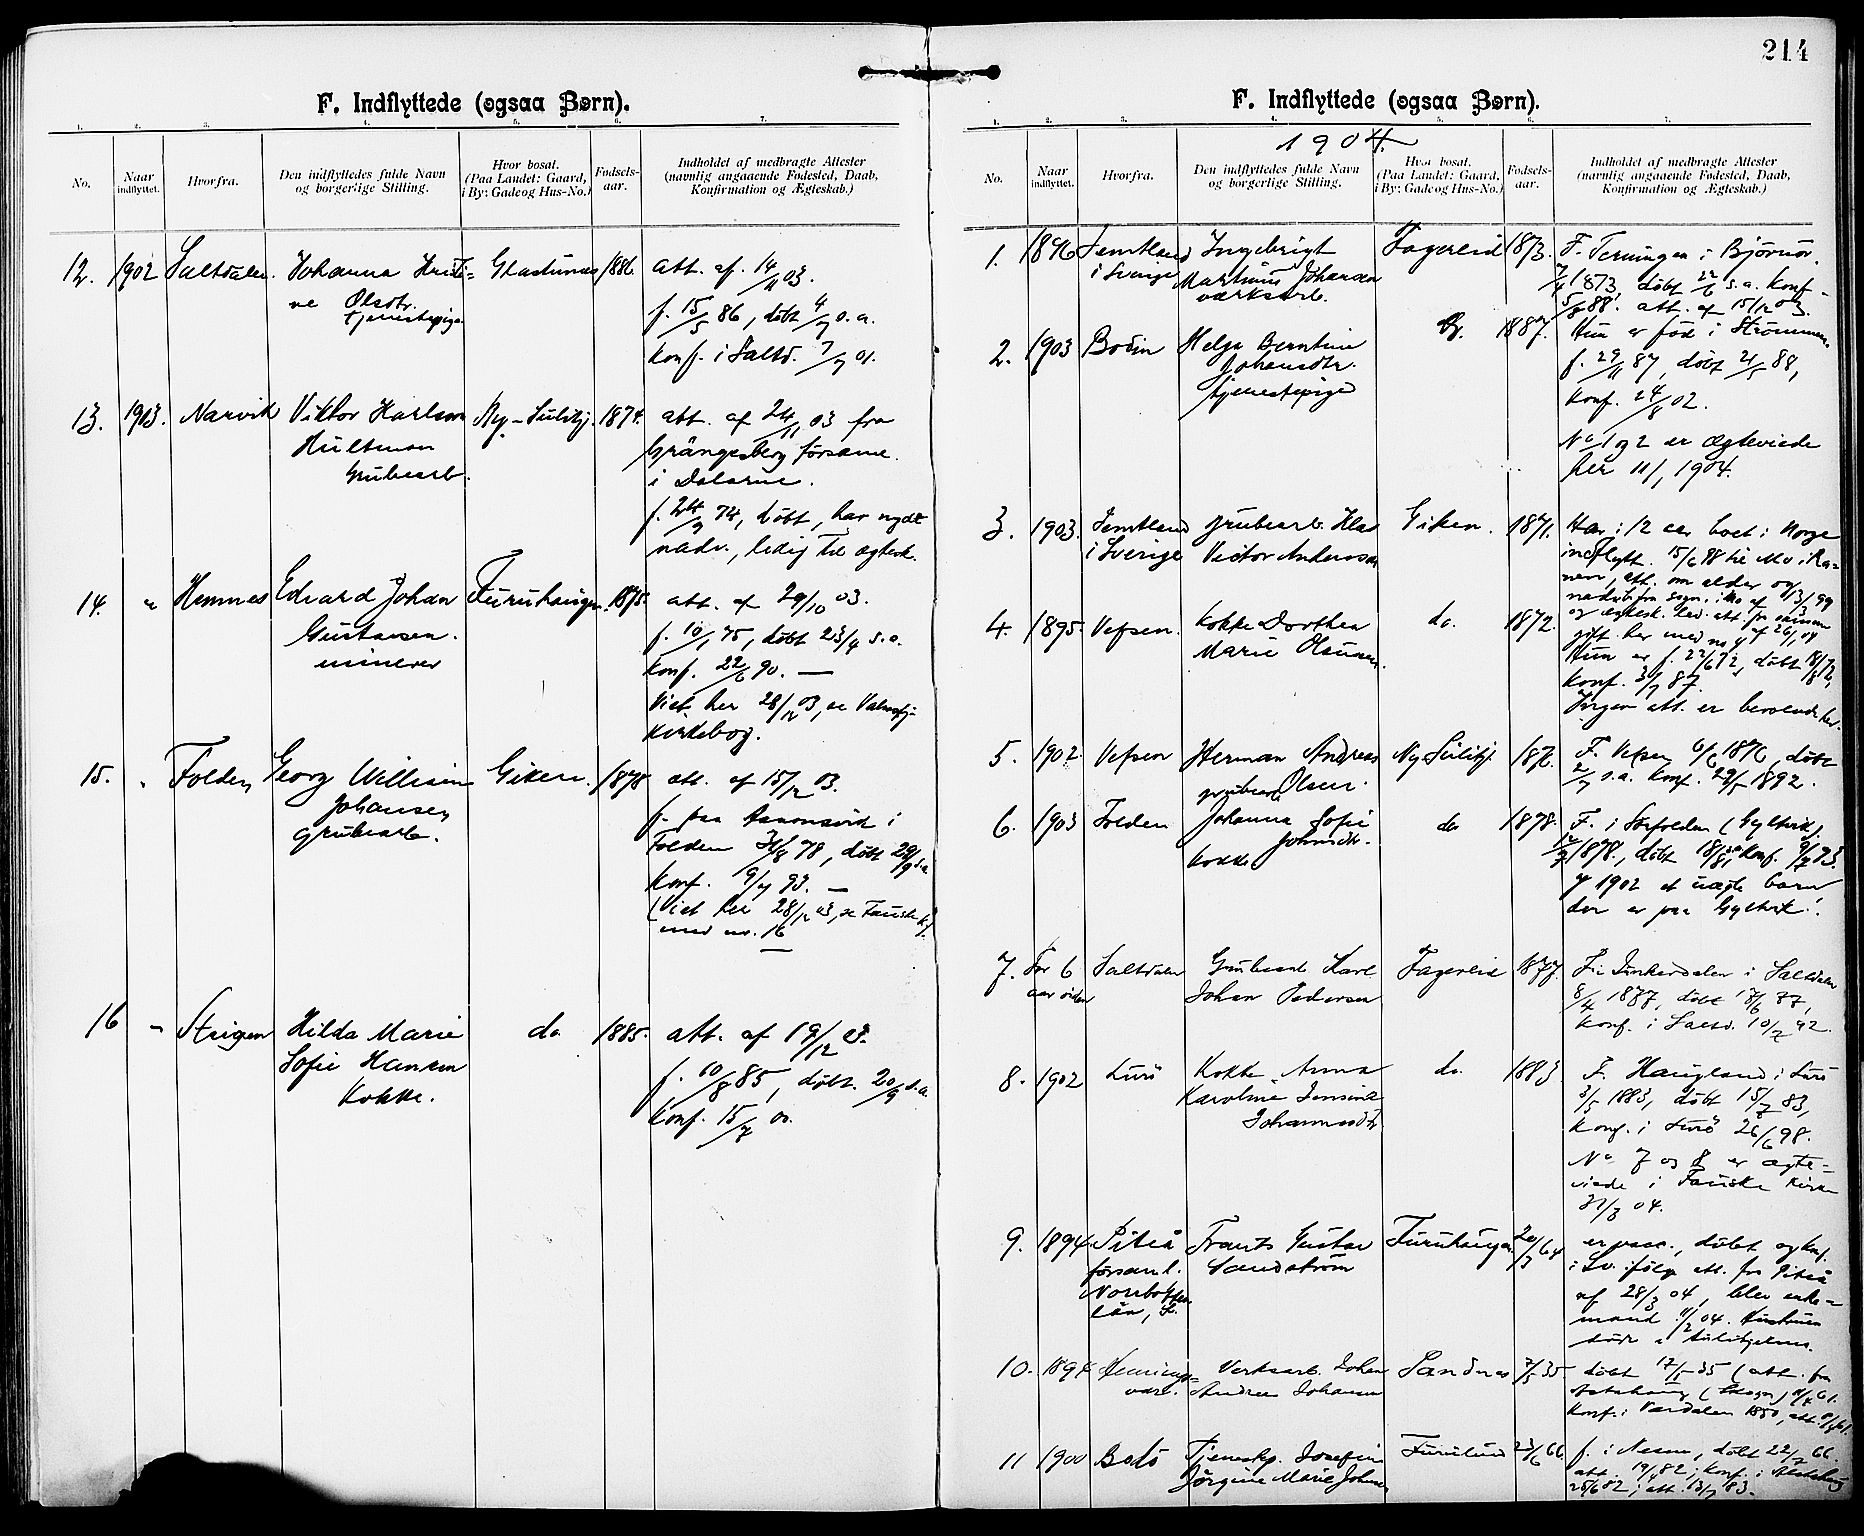 214
F. Indflyttede (ogsaa Børn).
1. 2. 3. 4. 5. 6. 7.
No.
Naar indflyttet.
Hvorfra.
Den indflyttedes fulde Navn og borgerlige Stilling.
Hvor bosat. (Paa Landet: Gaard, i By: Gade og Hus-No.)
Fødsels-aar.
Indholdet af medbragte Attester (navnlig angaaende Fødested, Daab, Konfirmation og Ægteskab.)
12. 1902 Saltdalen. Johanna Kristi= 1886 att. af 14/11 03.
ne Olsdtr.
tjenestepige
f. 15/5 86, døbt 4/7 s.a.
Konf. i Saltd. 7/7 01.
13. 1903. Narvik Viktor Karlson Ny-Sulitj. 1874. att. af 24/11 03 fra
Hultman Grängesberg församl.
Grubearb. i Dalarne.
f. 24/9 74, døbt, har nydt
nadv., ledig til ægtesk.
14. " Hemnes Edvard Johan Furuhaugen. 1875. att. af 29/10 03.
Gustavsen. f. 10/1 75, døbt 23/4 s.a.
minerer Konf. 22/6 90. —
Viet her 28/12 03, se
Kirkebog.
15. " Folden Georg Williem Giken. 1878 att. af 15/12 03.
Johansen f. paa i
grubearb. Folden 31/8 78, døbt 29/9 s.a.
Konf. 9/7 93. —
(Viet her 28/12 03, se Fauske kb.
med no. 16
16 " Steigen Hilda Marie do 1885. att. af 19/12 03.
Sofie Hansen f. 10/8 85, døbt. 20/9 s.a.
Kokke. Konf. 15/7 00.
F. Indflyttede (ogsaa Børn).
1. 2. 3. 4. 5. 6. 7.
1904.
No.
Naar indflyttet.
Hvorfra.
Den indflyttedes fulde Navn og borgerlige Stilling.
Hvor bosat. (Paa Landet: Gaard, i By: Gade og Hus-No.)
Fødsels-aar.
Indholdet af medbragte Attester (navnlig angaaende Fødested, Daab, Konfirmation og Ægteskab.)
1. 1896 Jemtland Ingebrigt Fagerlid 1873. F. Terningen i Bjørnør.
i Sverige Martinus Johansen 7/4 1873, døbt 22/6 s.a. Konf.
værksarb. 5/8 88. att. af 15/12 03.
2. 1903 Bodin Helga Berntine 1887. Hun er født i Strømmen.
Johansdtr. f. 29/11 87, døbt 21/5 88,
tjenestepige Konf. 24/8 02.
No 1 og 2 er ægteviede
her 11/1 1904.
3. 1903. Jemtland grubearb. Klas Giken. 1871. Har i 12 aar boet i Norge
i Sverige Victor Andersson indflytt. 15/6 98 til Mo i Ra=
nen, att. om alder og
4. 1895. Vefsen. Kokke Dorthea do. 1872.
Marie Olsen.
gift her med no 4
Hun er f. 22/6 72, døbt 18/8 72,
Konf. 3/7 87.
Ingen att. er beroende her.
5. 1902. Vefsen Herman Andreas Ny Sulitj. 1876. F. Vefsen 6/6 1876, døbt
grubearb. Olsen. 2/7 s.a. Konf. 29/5 1892.
6. 1903 Folden Johanna Sofie do 1878. F. i Sørfolden (Gyltvik).
Johnsdtr. 1878, døbt 18/8 s.a. Konf. 9/7 93.
Kokke 1902 et uægte barn
der er paa Gyltvik.
7. For 6 Saltdalen Grubearb. Karl Fagerlid 1877. F. i Junkerdalen i Saltdalen
aar siden Johan Pedersen 8/4 1877, døbt 17/6 77,
Konf. i Saltd. 10/7 92.
8. 1902 Lurö Kokke Anna do. 1883 F. Haugland i Lurö
Karoline Jensine 3/5 1883, døbt 15/7 83,
Johannesdtr. Konf. i Lurö 26/6 98.
No 7 og 8 er ægte=
viede i Fauske Kirke
04.
9. 1894 Piteå Frants Gustav Furuhaugen 20/3 64 er vacc., døbt og Konf.
församl. Sandström i Sv. ifølg att. fra Piteå
Norrbotten af 28/3 04, blev enke=
län, S. mand 11/2 04. Hustruen
døde i Sulitjelma.
10. 1894 Verksarb. Johan Sandnes 7/5 35 døbt 17/5 35 (att. fra
Andreas Johansen
Konf. i Værdalen 1850, att.
11 1900 Bodö Tjenestep. Josefine Furulund 23/6 66. f. i Nesne, døbt 22/7 66.
Jörgine Marie Johns. att. 19/4 82; Konf. i
25/6 82; att. 13/7 83.